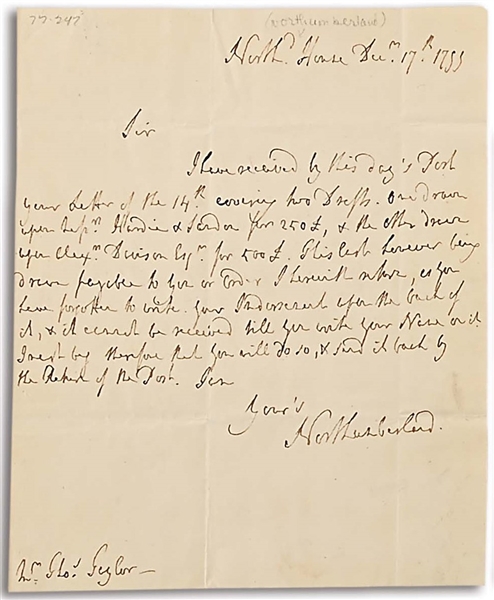 77-247
(Northumberland)
North.d House Decm. 17th. 1755
Sir
I have received by this day's Post
your Letter of the 14th. covering two Drafts. One drawn
upon Messrs. Hardie & for 250£, & the other drawn
upon Davison Esqr. for 500£. This last however being
drawn payable to You or Order I herewith return, as you
have forgotten to write your Indorsement upon the back of
it, & it cannot be received till you write your Name on it
I must beg therefore that you will do so, & send it back by
the Return of the Post. I am
Your's
Northumberland.
Mr. Thos. Taylor —